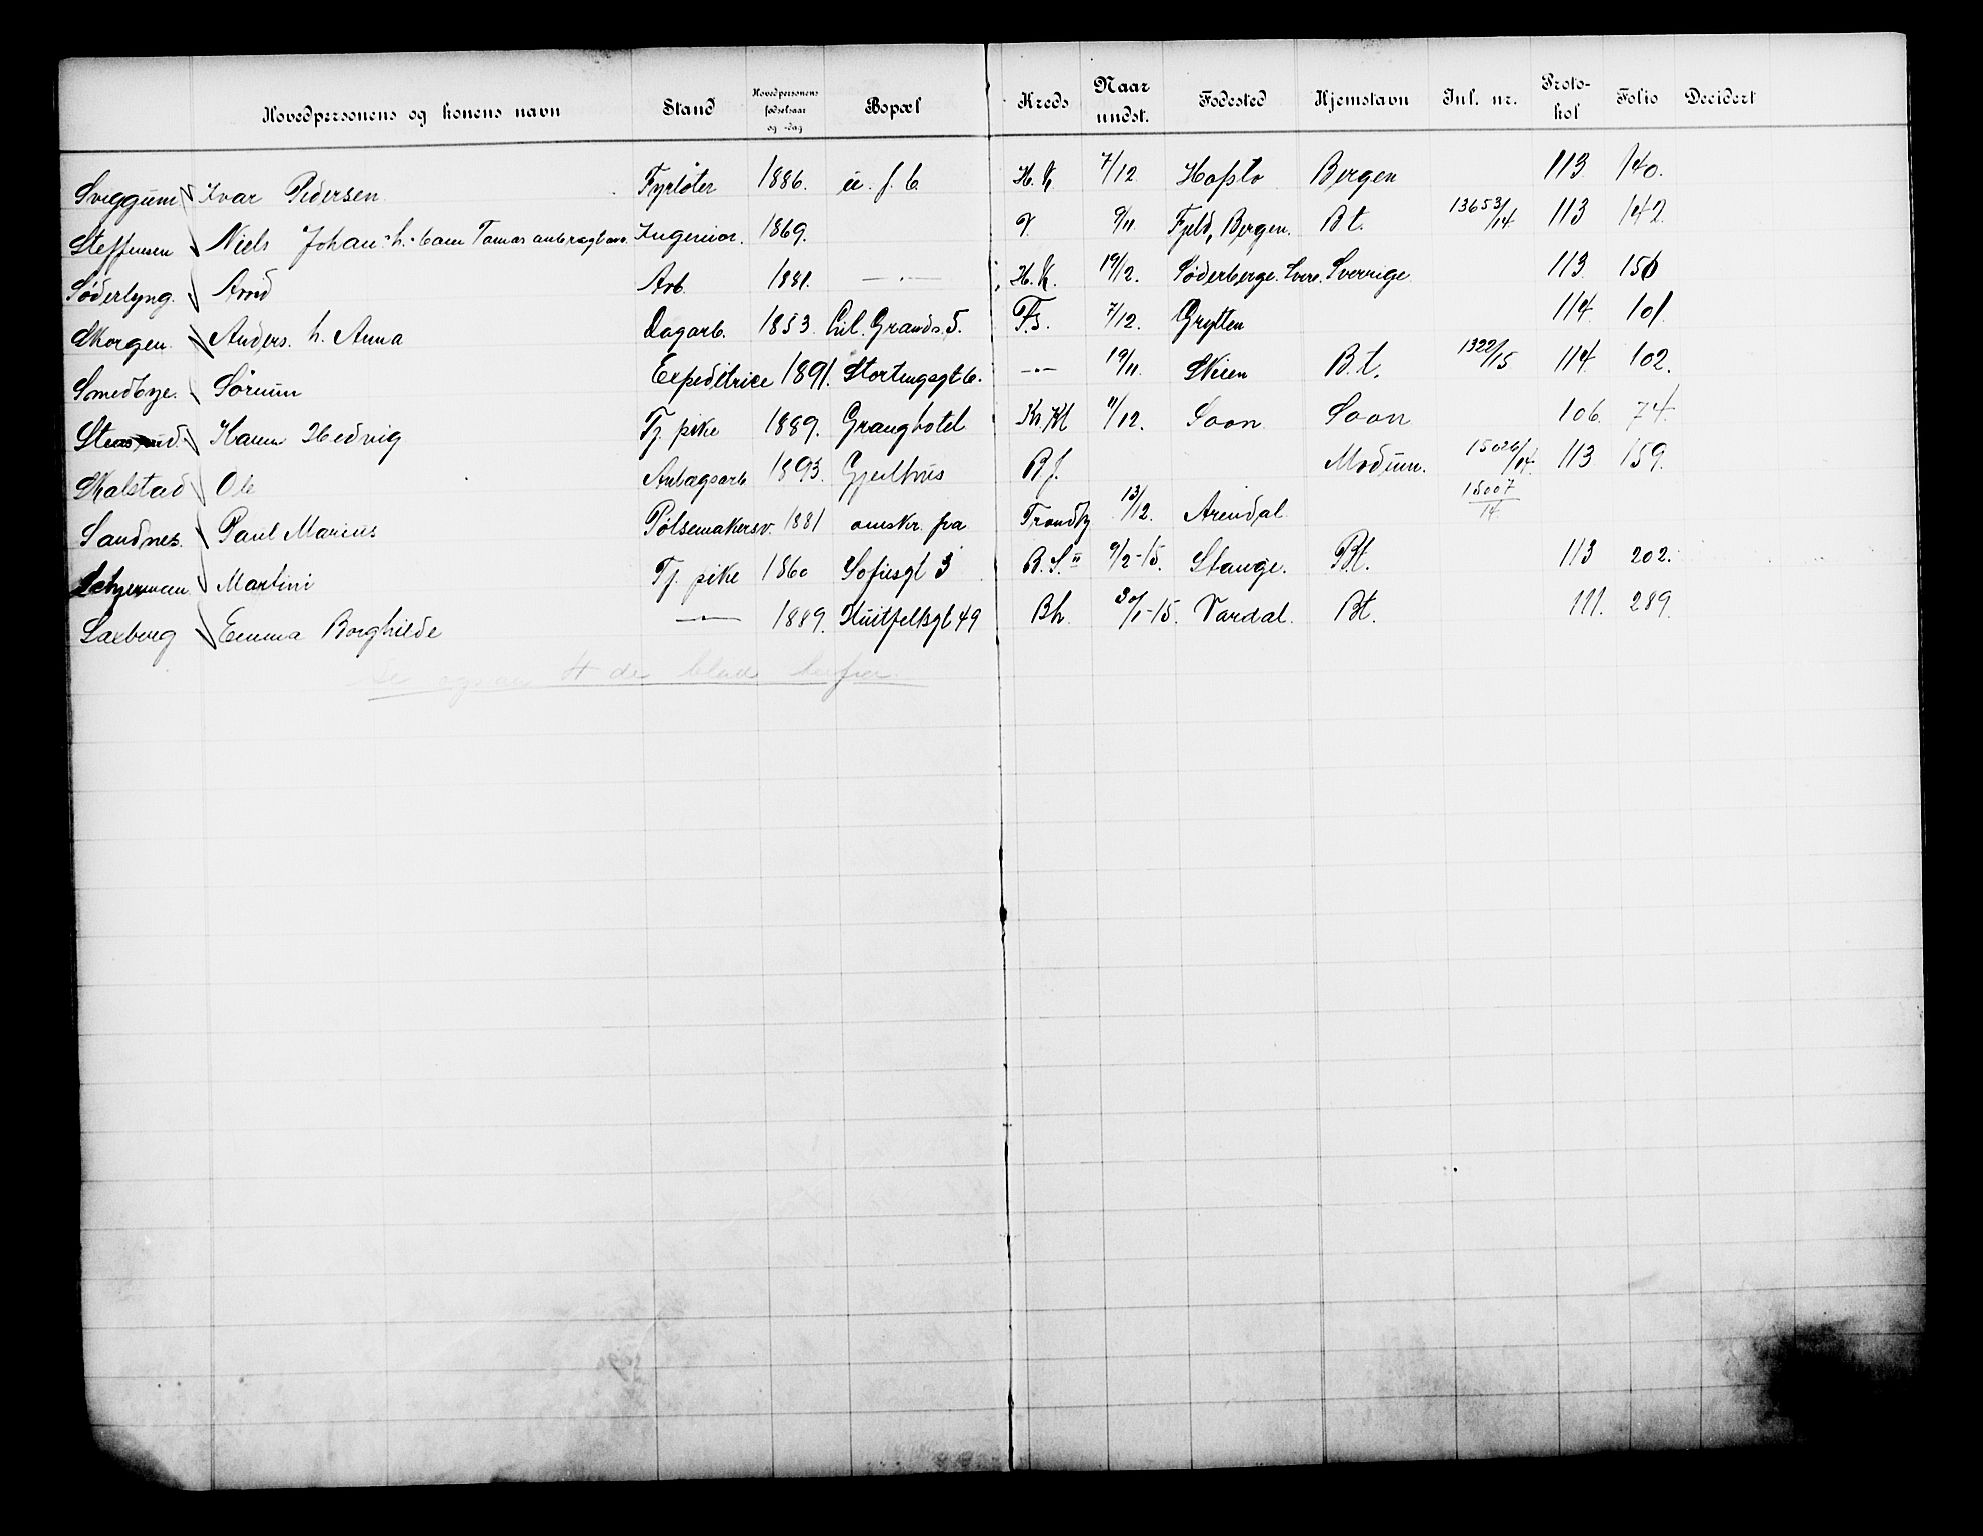 Hovedpersonens og konens navn Stand Hovedpersonens fødselsaar og -dag Bopæl Kreds Naar undst. Fødested Hjemstavn Inl. nr. Protokol Folio Decidert
Sveggum Ivar Pedersen Fyrbøter 1886. u. f. b. H. K. 7/12 Hafslo Bergen 113 140.
Steffensen Niels Johan h. barn Ingeniør. 1869. 9/11. Fjeld, Bergen. Bt. 13653/14 113 142
Søderlyng. Arvid Arb. 1881. — " — H. K. 19/12. Sverrige 113 150
Skorgen. Anders. h. Anna Dagarb. 1853. Lil. Grands. 5. F.S. 7/12. Grytten 114 101
Smedbye. Sørum Expeditrice 1891. Stortingsgt 6. — " — 19/11. Skien B.t. 1322/15 114 102.
Karen Hedvig Tj. pike 1889. Granghotel Kr. Kl 11/12. Soon Soon 106. 74
Skalstad Ole Anlægsarb 1893. Gjeithus B.f. Modum. 15026/14. 113 159.
Sandnes. Paul Marius Pølsemakersv. 1881 omskr. fra Trondhj 13/12. Arendal 15007/14
Martini Tj. pike 1860 Sofiesgt 3 B.S. 9/2-15. Stange. Bt. 113 202.
Saxberg Emma Borghilde — " — 1889. Huitfeltsgt 49 Bh. 30/1-15. Vardal. Bt. 111. 289.
Se ogsaa 4 de blad herfra.